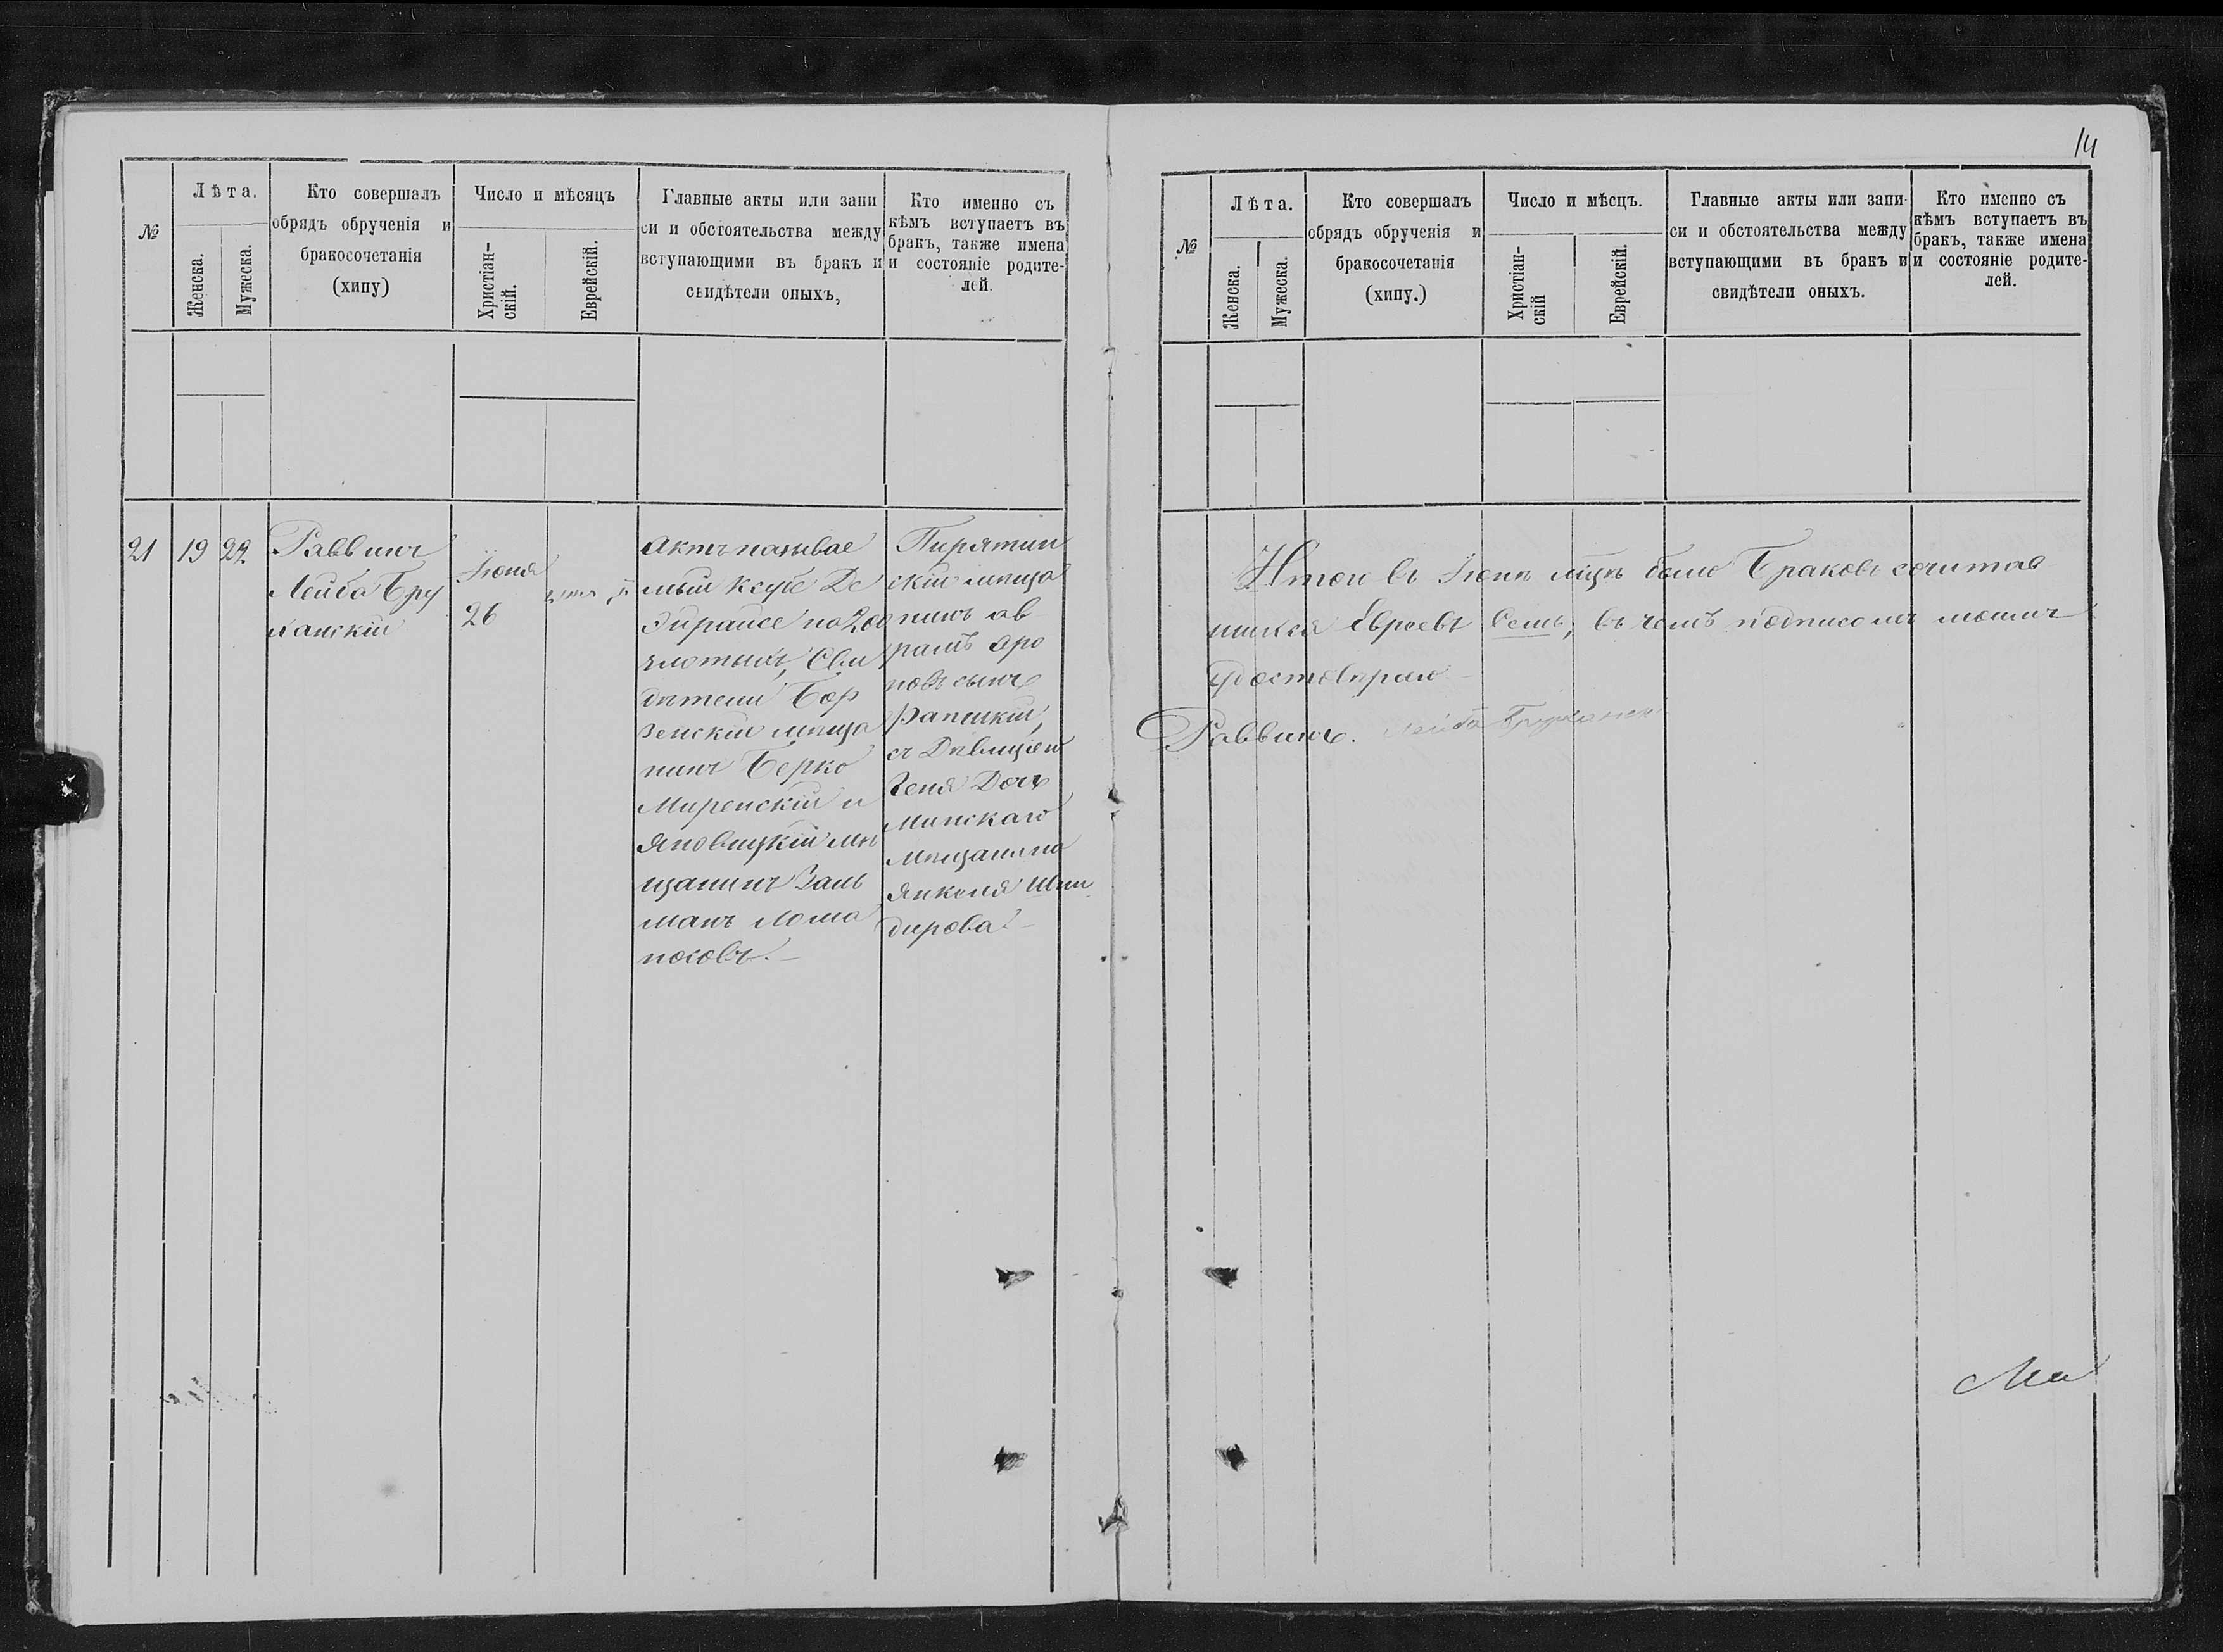 №
Лѣта.
Женска.
Мужеска.
Кто совершалъ
обрядъ обрученія и
бракосочетанія
(хипу)
Число и мѣсяцъ
Христіан-
скій.
Еврейскій.
Главные акты или запи
си и обстоятельства между
вступающими въ бракъ и
свидѣтели оныхъ,
Кто именно съ
кѣмъ вступаетъ въ
бракъ, также имена
и состояніе родите-
лей.
21
19
Раввинъ
Лейба Бру
ханскій
Іюня
26
Актъ называе
мый Ксубе Де
Эйрайсе на 200
злотыхъ, Сви
дѣтели Бор
зенскій мѣща
нинъ Берко
Миренскій и
Яновицкій мѣ
щанинъ Заль
манъ Лома
носовъ.—
Пирятин
скій мѣща
нинъ Аб
рамъ Аро
новъ сынъ
Рапицкій,
съ Дѣвицею
Геня Дочь
Минскаго
Мѣщанина
Янкеля Шни
дирова—
14
№
Лѣта.
Женска.
Мужеска.
Кто совершалъ
обрядъ обрученія и
бракосочетанія
(хипу.)
Число и мѣсцъ.
Христіан-
скій
Еврейскій.
Главные акты или запи-
си и обстоятельства между
вступающими въ бракъ и
свидѣтели оныхъ.
Кто именно съ
кѣмъ вступаетъ въ
бракъ, также имена
и состояніе родите-
лей.
Итого въ Іюнѣ мѣцѣ было Браковъ сочитав
шихся Евреевъ Семь, въ чемъ подписомъ моимъ
удостовѣряю
Раввинъ. Лейба Бруханскій